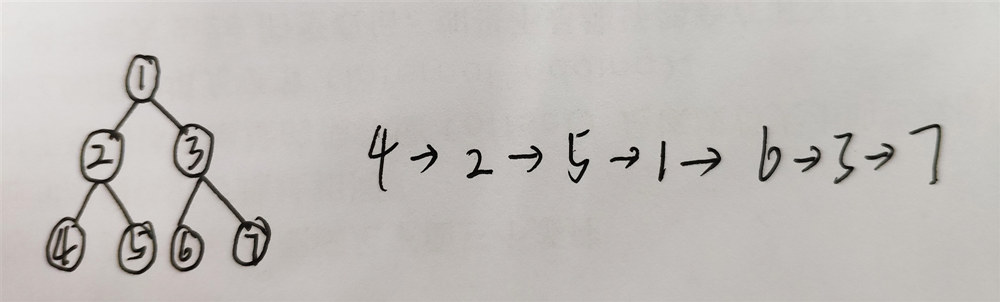 1
2 3
4 5 6 7
4→2→5→1→6→3→7